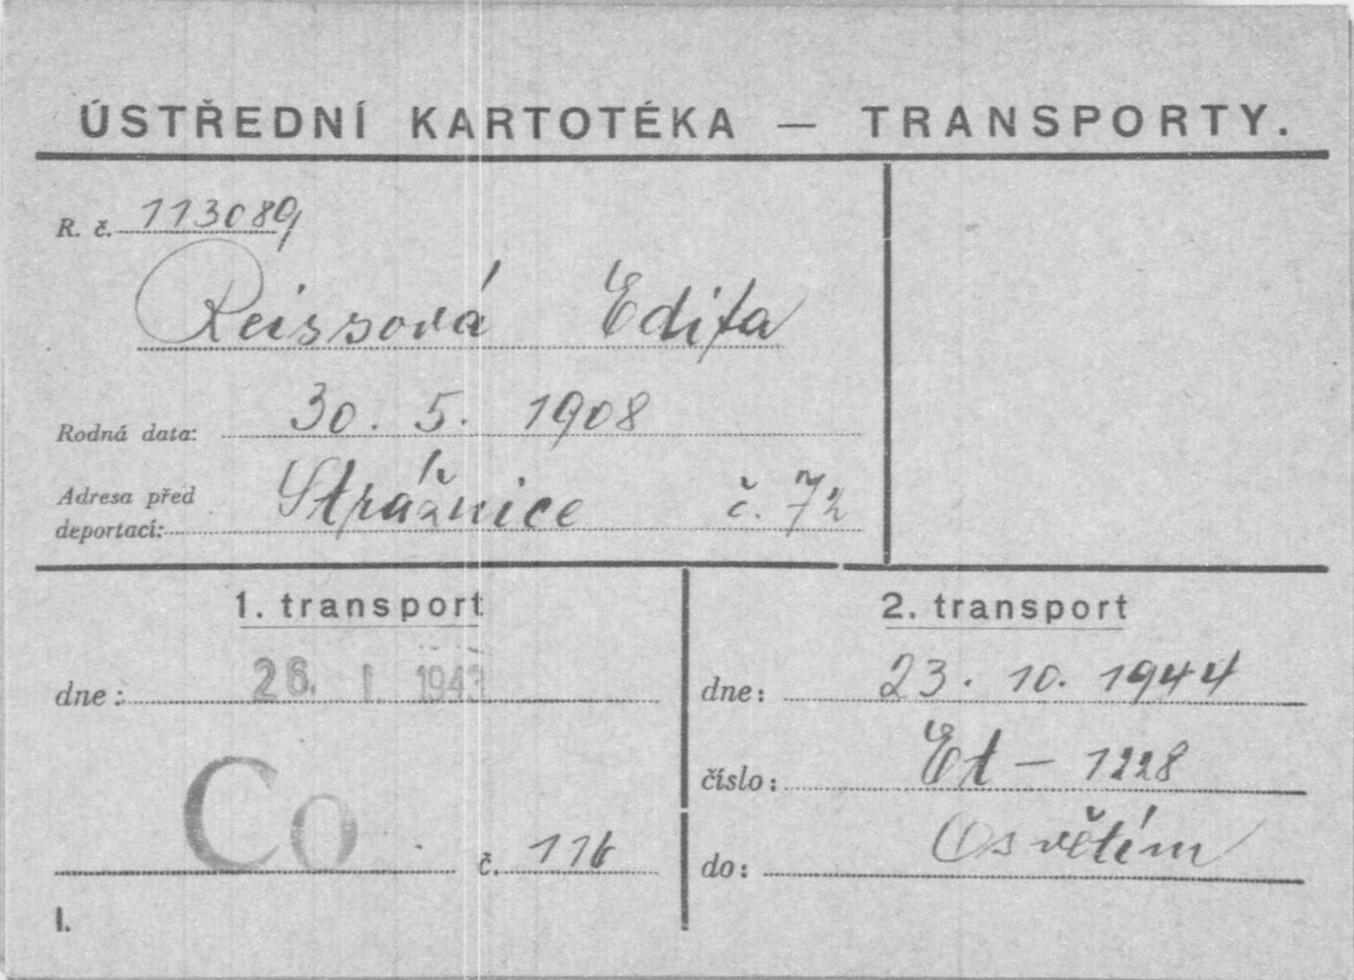 ÚSTŘEDNÍ KARTOTÉKA — TRANSPORTY.
R. č. 113089
Reissová Edita
Rodná data: 30. 5. 1908
Adresa před
deportací: Strážnice č. 72
1. transport
dne: 26. I. 1943
Co č. 116
I.
2. transport
dne: 23. 10. 1944
číslo: Et - 1228
do: Osvětím